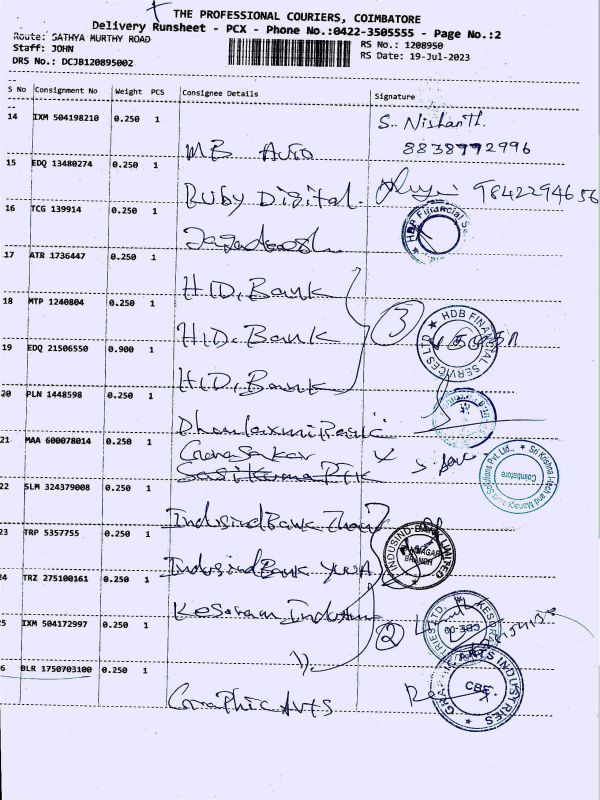 THE PROFESSIONAL COURIERS, COIMBATORE
Delivery Runsheet - PCX - Phone No.:0422-3505555 - Page No.:2
Route: SATHYA MURTHY ROAD
RS No.: 1208950
Staff: JOHN
RS Date: 19-Jul-2023
DRS No.: DCJB120895002
S No Consignment No Weight PCS Consignee Details Signature
14 IXM 504198210 0.250 1 MB Auto S. Nishanth. 8838992996
15 EDQ 13480274 0.250 1 Ruby Digital. 9842294656
16 TCG 139914 0.250 1 Jagadeesh
17 ATR 1736447 0.250 1 H.D. Bank
18 MTP 1240804 0.250 1 H.D. Bank 3
HDB FINANCIAL SERVICES LTD
19 EDQ 21506550 0.900 1 H.D. Bank
20 PLN 1448598 0.250 1
21 MAA 600078014 0.250 1
Sri Krishna Hitech and Management Solutions Pvt. Ltd., Coimbatore
22 SLM 324379008 0.250 1 Indusind Bank
INDUSIND BANK LIMITED
BRANCH
23 TRP 5357755 0.250 1 Indusind Bank
24 TRZ 275100161 0.250 1
25 IXM 504172997 0.250 1 2
CBE
26 BLR 1750703100 0.250 1 Graphic Arts
GRAPHIC ARTS INDUSTRIES
CBE.